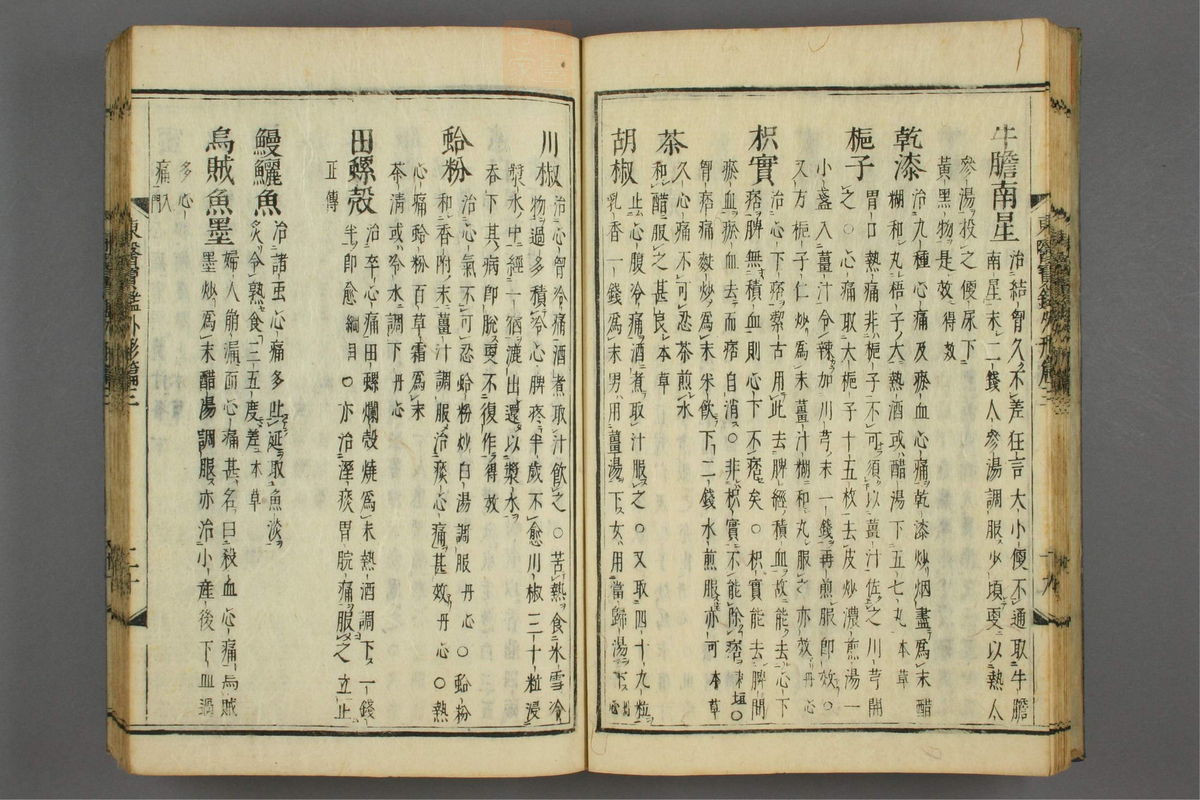 牛膽南星 治結胷久不差狂言大小便不通取牛膽
南星末二錢人參湯調服少頃更以熱人
參湯投之便尿下
黃黑物是效得效
乾漆 治九種心痛及瘀血心痛乾漆炒烟盡爲末醋
糊和丸梧子大熱酒或醋湯下五七丸本草
梔子 胃口熱痛非梔子不可須以薑汁佐之川芎開
之○心痛取大梔子十五枚去皮炒濃煎湯一
小盞入薑汁令辣加川芎末一錢再煎服卽效○
又方梔子仁炒爲末薑汁糊和丸服之亦效丹心
枳實 治心下痞潔古用此去脾經積血故能去心下
痞脾無積血則心下不痞矣○枳實能去脾間
瘀血瘀血去而痞自消○非枳實不能除痞東垣○
胷痞痛麩炒爲末米飮下二錢水煎服亦可本草
茶 久心痛不可忍茶煎水
和醋服之甚良本草
胡椒 止心腹冷痛酒煮取汁服之○又取四十九粒
乳香一錢爲末男用薑湯下女用當歸湯下
川椒 治心胷冷痛酒煮取汁飮之○苦熱食氷雪冷
物過多積冷心脾疼半歲不愈川椒三十粒浸
漿水中經一宿漉出還以漿水
吞下其病卽脫更不復作得效
蛤粉 治心氣不可忍蛤粉炒白湯調服丹心○蛤粉
和香附末薑汁調服治痰心痛甚效丹心○熱
心痛蛤粉百草霜爲末
茶淸或冷水調下丹心
田螺殼 治卒心痛田螺爛殼燒爲末熱酒調下一錢
半卽愈綱目○亦治溼痰胃脘痛服之立止
正傳
鰻鱺魚 治諸蟲心痛多止涎取魚淡
炙令熟食三五度差本草
烏賊魚墨 婦人崩漏而心痛甚名曰殺血心痛烏賊
墨炒爲末醋湯調服亦治小產後下血過
多心
痛入門
東醫寶鑑外形篇三
十九
東醫寶鑑外形篇三
二十